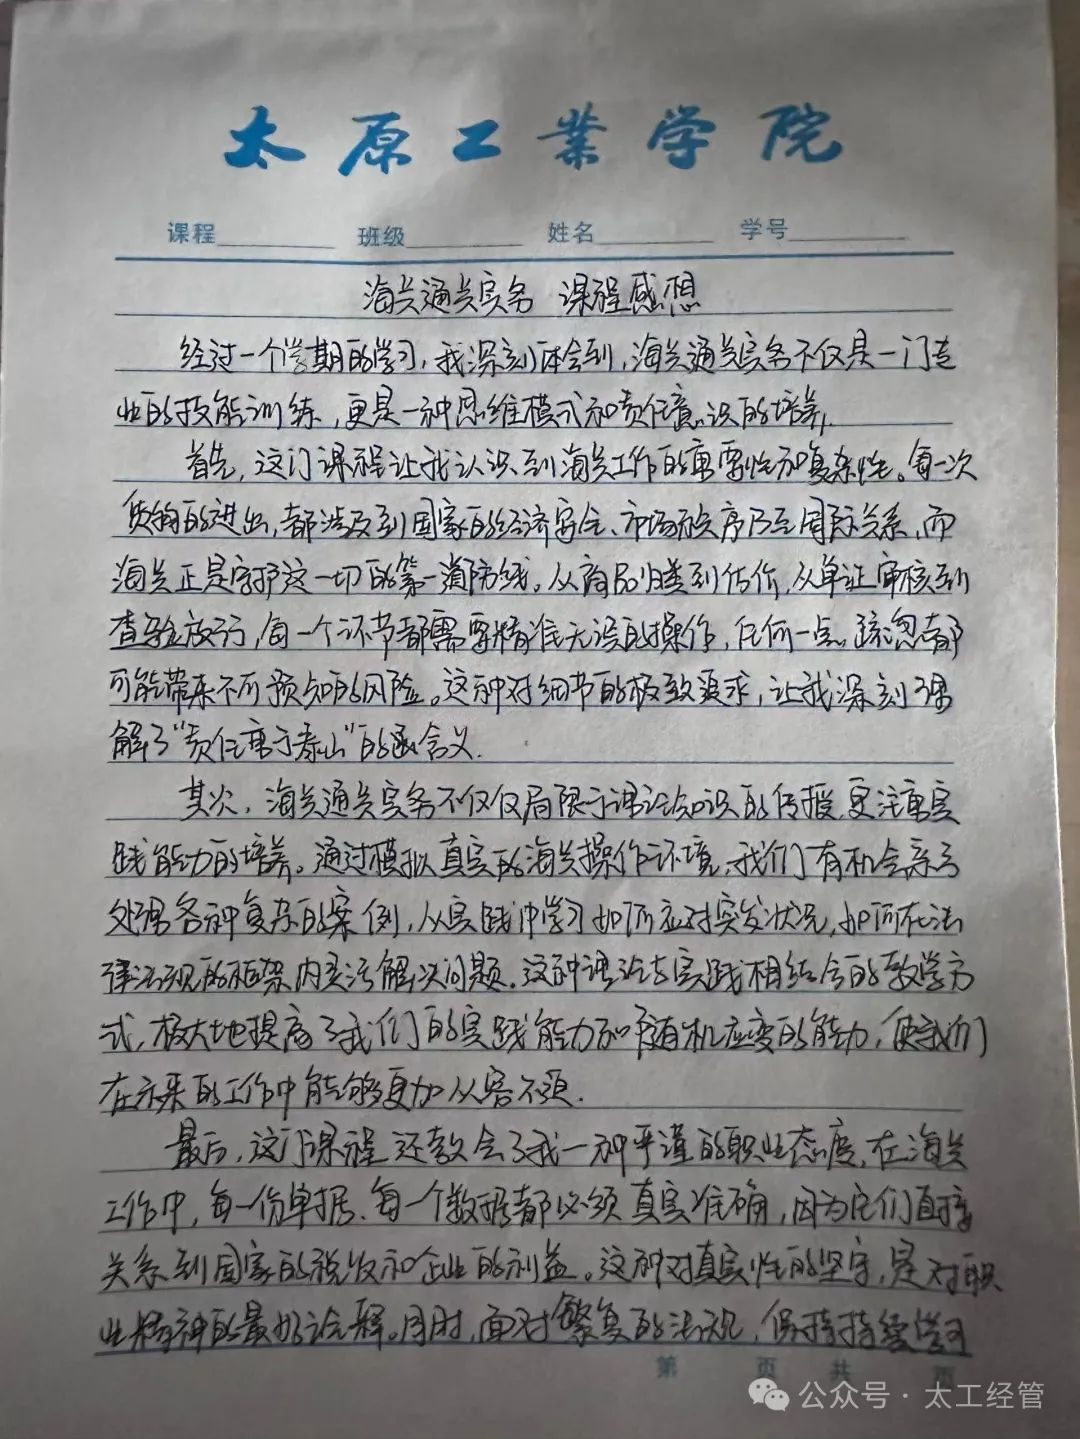 太原工业学院
课程 班级 姓名 学号
海关通关实务 课程感想
经过一个学期的学习，我深刻体会到，海关通关实务不仅是一门专
业的技能训练，更是一种思维模式和责任意识的培养。
首先，这门课程让我认识到海关工作的重要性和复杂性。每一次
货物的进出，都涉及到国家的经济安全、市场秩序乃至国际关系，而
海关正是守护这一切的第一道防线。从商品归类到估价，从单证审核到
查验放行，每一个环节都需要精准无误的操作，任何一点疏忽都
可能带来不可预知的风险。这种对细节的极致追求，让我深刻理
解了“责任重于泰山”的含义.
其次，海关通关实务不仅仅局限于理论知识的传授，更注重实
践能力的培养。通过模拟真实的海关操作环境，我们有机会亲手
处理各种复杂的案例，从实践中学习如何应对突发状况，如何在法
律法规的框架内灵活解决问题。这种理论与实践相结合的教学方
式，极大地提高了我们的实践能力和随机应变的能力，使我们
在未来的工作中能够更加从容不迫.
最后，这门课程还教会了我一种严谨的职业态度，在海关
工作中，每一份单据、每一个数据都必须真实准确，因为它们直接
关系到国家的税收和企业的利益。这种对真实性的坚守，是对职
业精神的最好诠释。同时，面对繁复的法规，保持持续学习
第 页 共 页
公众号 · 太工经管